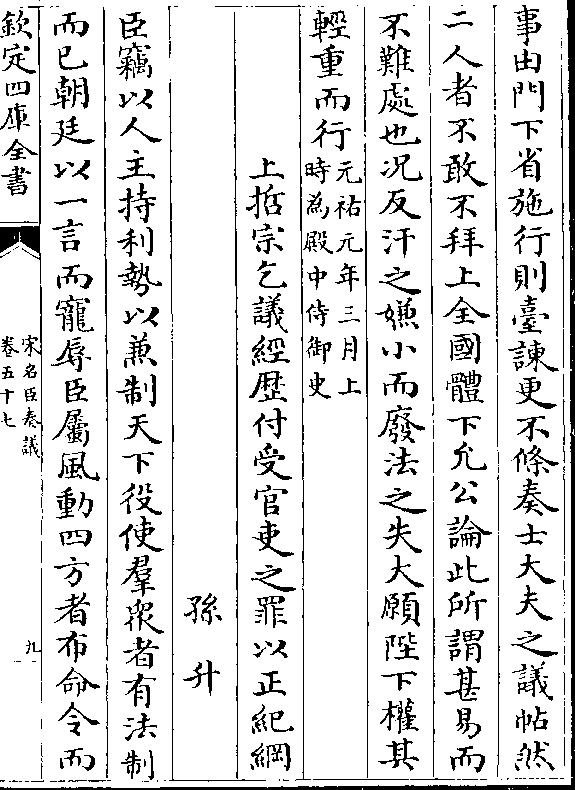 事由門下省施行則臺諫更不條奏士大夫之議帖然
二人者不敢不拜上全國體下允公論此所謂甚易而
不難處也况反汗之嫌小而廢法之失大願陛下權其
輕重而行元祐元年三月上
時為殿中侍御史
上哲宗乞議經歴付受官吏之罪以正紀綱
孫升
臣竊以人主持利勢以兼制天下役使羣衆者有法制
而已朝廷以一言而寵辱臣屬風動四方者布命令而
欽定四庫全書
宋名臣奏議
卷五十七
九